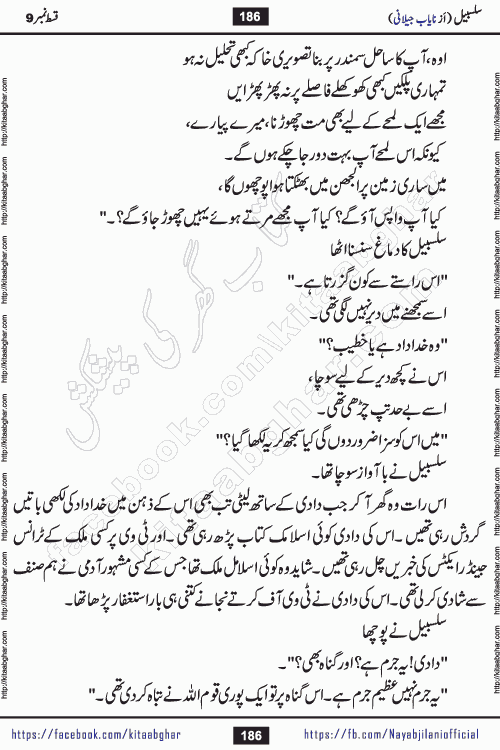 سلسبیل (از نایاب جیلانی)
186
قسط نمبر 9
اوہ، آپ کا ساحل سمندر پر بنا تصویری خاکہ کبھی تحلیل نہ ہو
تمہاری پلکیں کبھی کھوکھلے فاصلے پر نہ پھڑپھڑائیں
مجھے ایک لمحے کے لیے بھی مت چھوڑنا، میرے پیارے،
کیونکہ اس لمحے آپ بہت دور جا چکے ہوں گے۔
میں ساری زمین پر الجھن میں بھٹکتا ہوا پوچھوں گا،
کیا آپ واپس آؤ گے؟ کیا آپ مجھے مرتے ہوئے یہیں چھوڑ جاؤ گے؟۔"
سلسبیل کا دماغ سنسنا اٹھا
"اس راستے سے کون گزرتا ہے۔"
اسے سمجھنے میں دیر نہیں لگی تھی۔
"وہ خداداد ہے یا خطیب؟"
اس نے کچھ دیر کے لیے سوچا،
اسے بے حد تپ چڑھی تھی۔
"میں اس کو سزا ضرور دوں گی کیا سمجھ کر یہ لکھا گیا؟"
سلسبیل نے با آواز سوچا تھا۔
اس رات وہ گھر آ کر جب دادی کے ساتھ لیٹی تب بھی اس کے ذہن میں خداداد کی لکھی باتیں
گردش رہی تھیں۔ اس کی دادی کوئی اسلامک کتاب پڑھ رہی تھی۔ اور ٹی وی پر کسی ملک کے ٹرانس
جینڈر ایکٹس کی خبریں چل رہی تھیں۔ شاید وہ کوئی اسلامل ملک تھا جس کے کسی مشہور آدمی نے ہم صنف
سے شادی کر لی تھی۔ اس کی دادی نے ٹی وی آف کرتے نجانے کتنی ہی بار استغفار پڑھا تھا۔
سلسبیل نے پوچھا
"دادی! یہ جرم ہے؟ اور گناہ بھی؟"۔
"یہ جرم نہیں عظیم جرم ہے۔ اس گناہ پر تو ایک پوری قوم اللہ نے تباہ کر دی تھی۔"
https://facebook.com/kitaabghar
186
https://fb.com/Nayabjilaniofficial
http://kitaabghar.com
کتاب گھر کی پیشکش
facebook.com/kitaabghar
kitaabghar.com